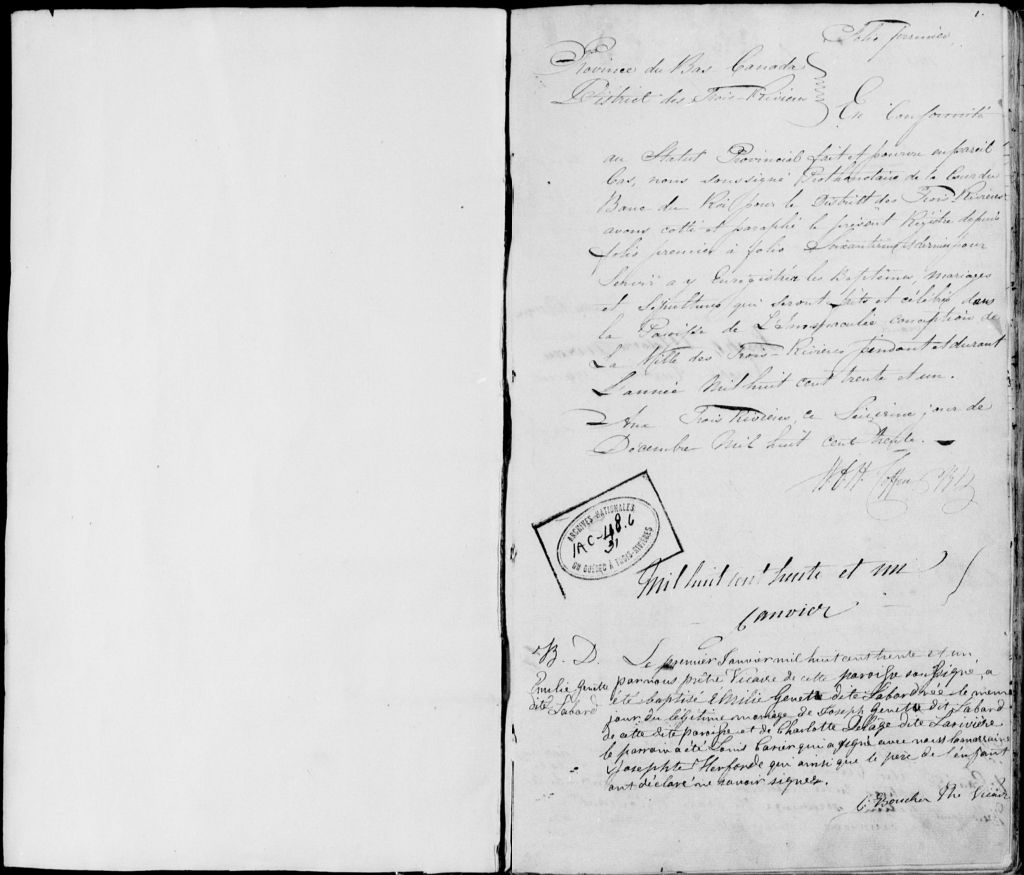 1.
Folio premier
Province du Bas Canada
District des Trois-Rivières
En Conformité
au Statut Provincial fait et pourvu en pareil
Cas, nous soussigné Prothonotaire de la Cour du
Banc du Roi pour le District des Trois Rivières
avons cotté et paraphé le présent Régistre depuis
folio premier à folio dernier pour
Servir a y Enregistrer les Baptêmes, mariages
et Sépultures qui seront faits et célébrés dans
la Paroisse de L'Immaculée conception de
La Ville des Trois-Rivières pendant et durant
L'année Mil huit cent trente et un.
Aux Trois Rivières, ce Seizième jour de
Décembre Mil huit cent trente.
ARCHIVES NATIONALES
1AC-48.6
31
DU QUÉBEC À TROIS-RIVIÈRES
Mil huit cent trente et un
Janvier
B. D.
Emelie Genette
dite Labard
Le premier Janvier mil huit cent trente et un
par nous prêtre Vicaire de cette paroisse soussigné, a
été baptisé Emilie Genette dite Labard née le meme
jour du légitime mariage de Joseph Genette dit Labard
de cette dite paroisse et de Charlotte dite Larivière
le parrain a été Louis Carier qui a signé avec nous la marraine
Josephte qui ainsi que le père de l'enfant
ont déclaré ne savoir signer.
Boucher Ptre Vicaire